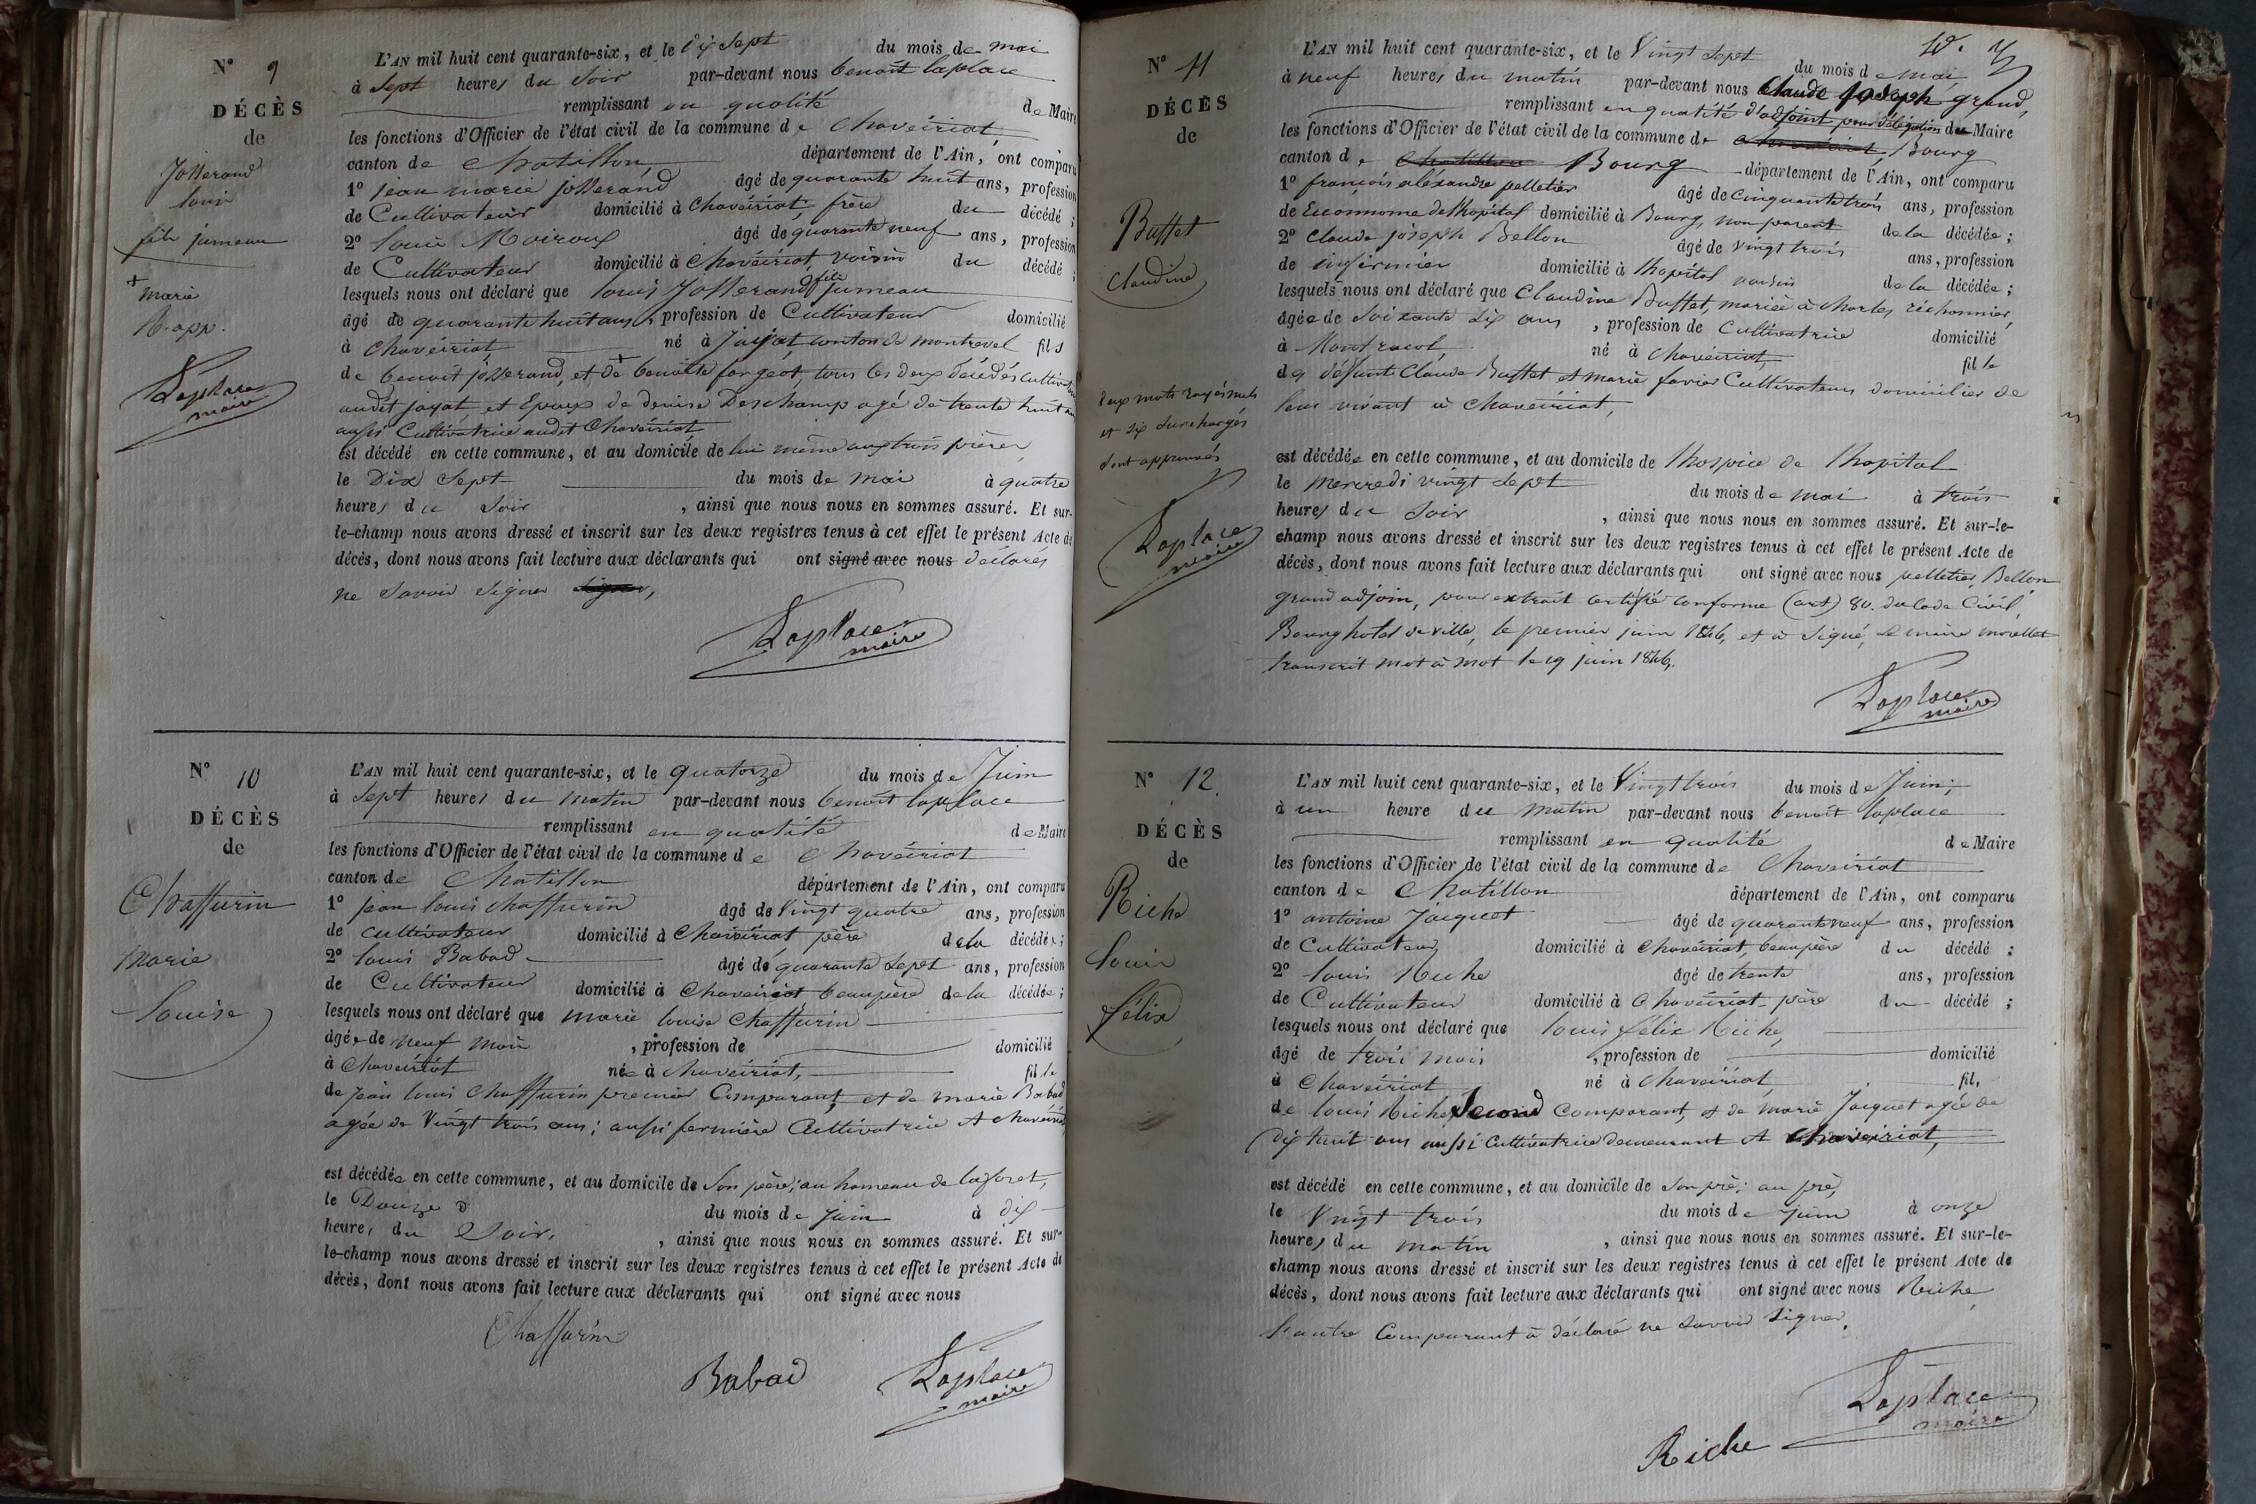 N° 9
DÉCÈS
de
Josserand
louis
fils jumeau
+
marie
Laplace
maire
L'AN mil huit cent quarante-six, et le dix Sept du mois de mai
à Sept heures du Soir par-devant nous benoît laplace
remplissant en qualité de Maire
les fonctions d'Officier de l'état civil de la commune de Chaveiriat
canton de Chatillon, département de l'Ain, ont comparu
1° jean marie josserand âgé de quarante huit ans, profession
de Cultivateur domicilié à Chaveiriat, frère du décédé ;
2° louis Moiroux âgé de quarante neuf ans, profession
de Cultivateur domicilié à Chaveiriat, voisin du décédé ;
lesquels nous ont déclaré que louis Josserand fils jumeau
âgé de quarante huit ans, profession de Cultivateur domicilié
à Chaveiriat né à Jayat, canton de montrevel fils
de benoît josserand, et de + benoîte forgeot, tous les deux décédés cultivateurs
audit jayat, et Epoux de denise Deschamp agé de trente huit ans
aussi Cultivatrice audit Chaveiriat
est décédé en cette commune, et au domicile de lui même aux trois
le Dix Sept du mois de mai à quatre
heures du Soir, ainsi que nous nous en sommes assuré. Et sur-
le-champ nous avons dressé et inscrit sur les deux registres tenus à cet effet le présent Acte de
décès, dont nous avons fait lecture aux déclarants qui ont signé avec nous déclarés
ne Savoir Signer
Laplace
maire
N° 10
DÉCÈS
de
Chaffurin
marie
louise
L'AN mil huit cent quarante-six, et le quatorze du mois de Juin
à Sept heures du matin par-devant nous benoît laplace
remplissant en qualité de Maire
les fonctions d'Officier de l'état civil de la commune de Chaveiriat
canton de Chatillon département de l'Ain, ont comparu
1° jean louis chaffurin âgé de Vingt quatre ans, profession
de cultivateur domicilié à Chaveiriat père de la décédée ;
2° louis Babad âgé de quarante Sept ans, profession
de Cultivateur domicilié à Chaveiriat beaupère de la décédée ;
lesquels nous ont déclaré que marie louise Chaffurin
âgée de neuf mois, profession de domicilié
à Chaveiriat née à Chaveiriat, fille
de jean louis Chaffurin premier Comparant, et de marie Babad
agée de Vingt trois ans; aussi fermière Cultivatrice A chaveiriat
est décédée en cette commune, et au domicile de Son père, au hameau de laforet,
le Douze du mois de juin à dix
heures du Soir, ainsi que nous nous en sommes assuré. Et sur-
le-champ nous avons dressé et inscrit sur les deux registres tenus à cet effet le présent Acte de
décès, dont nous avons fait lecture aux déclarants qui ont signé avec nous
Chaffurin
Babad
Laplace
maire
N° 11
DÉCÈS
de
Buffet
Claudine
deux mots rayés nuls
et Six Surchargés
Sont approuvés
Laplace
maire
L'AN mil huit cent quarante-six, et le Vingt Sept du mois de mai
à neuf heures du matin par-devant nous Claude Joseph grand,
remplissant en qualité d'adjoint pour délégation du Maire
les fonctions d'Officier de l'état civil de la commune de Chaveiriat, Bourg
canton de Chatillon Bourg département de l'Ain, ont comparu
1° françois alexandre pelletier âgé de Cinquante trois ans, profession
de Economme de lhopital domicilié à Bourg, non parent de la décédée ;
2° Claude joseph Bellon âgé de vingt trois ans, profession
de infirmier domicilié à lhopital voisin de la décédée ;
lesquels nous ont déclaré que Claudine Buffet, mariée à Charles réchonnier,
âgée de Soixante dix ans, profession de Cultivatrice domicilié
à Montracol, né à Chaveiriat, fille
des défunts Claude Buffet et marie favier Cultivateurs domicilier de
leur vivant à Chaveiriat,
est décédée en cette commune, et au domicile de lhospice de lhopital
le mercredi vingt Sept du mois de mai à trois
heures du Soir, ainsi que nous nous en sommes assuré. Et sur-le-
champ nous avons dressé et inscrit sur les deux registres tenus à cet effet le présent Acte de
décès, dont nous avons fait lecture aux déclarants qui ont signé avec nous pelletier, Bellon
grand adjoin, pour extrait certifié conforme (art) 80. du Code Civil,
Bourg hotel de ville, le premier juin 1846, et a Signé, le maire morellet
transcrit mot à mot le 19 juin 1846.
Laplace
maire
N° 12
DÉCÈS
de
Riche
louis
félix
L'AN mil huit cent quarante-six, et le Vingt trois du mois de Juin,
à un heure du matin par-devant nous benoît laplace
remplissant en qualité de Maire
les fonctions d'Officier de l'état civil de la commune de Chaveiriat
canton de Chatillon département de l'Ain, ont comparu
1° antoine Jacquet âgé de quarante neuf ans, profession
de Cultivateur, domicilié à Chaveiriat, beaupère du décédé ;
2° louis Riche âgé de trente ans, profession
de Cultivateur domicilié à Chaveiriat père du décédé ;
lesquels nous ont déclaré que louis félix Riche,
âgé de trois mois, profession de domicilié
à Chaveiriat né à Chaveiriat, fils
de louis Riche Second Comparant, et de marie Jacquet agée de
dix huit ans aussi Cultivatrice demeurant A Chaveiriat,
est décédé en cette commune, et au domicile de Son père; au pré,
le Vingt trois du mois de juin à onze
heures du matin, ainsi que nous nous en sommes assuré. Et sur-le-
champ nous avons dressé et inscrit sur les deux registres tenus à cet effet le présent Acte de
décès, dont nous avons fait lecture aux déclarants qui ont signé avec nous Riche,
l'autre Comparant à déclaré ne Savoir Signer.
Laplace
maire
Riche